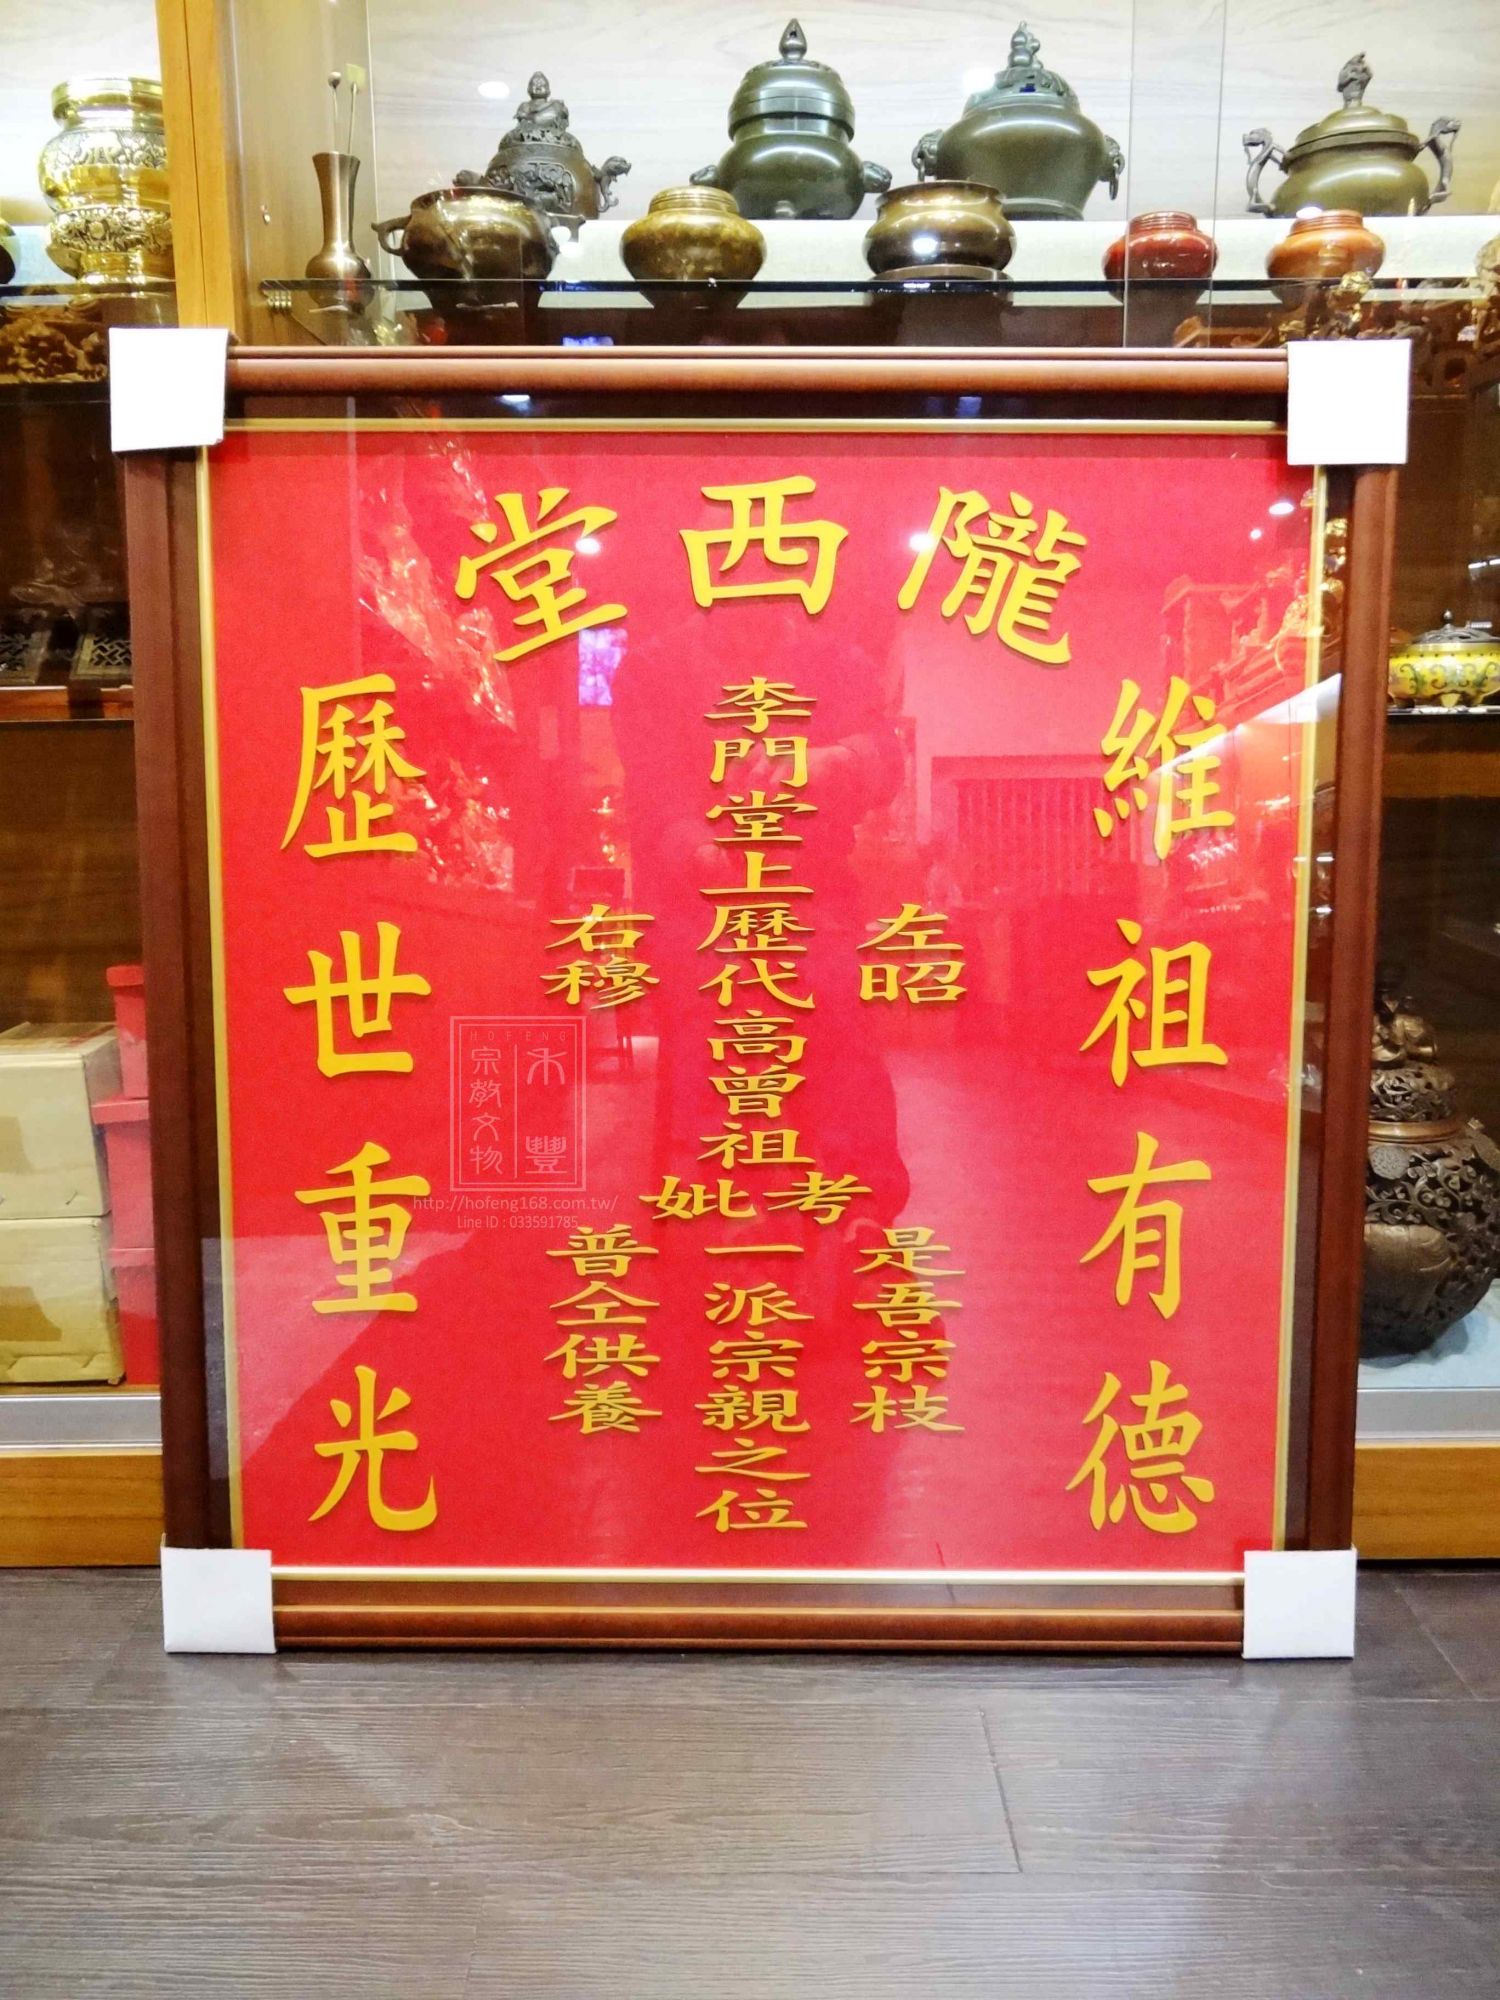 隴西堂
維祖有德
左昭
是吾宗枝
李門堂上歷代高曾祖
考妣
一派宗親之位
右穆
普仝供養
歷世重光
HOFENG
禾豐
宗教文物
http://hofeng168.com.tw/
Line ID : 033591785